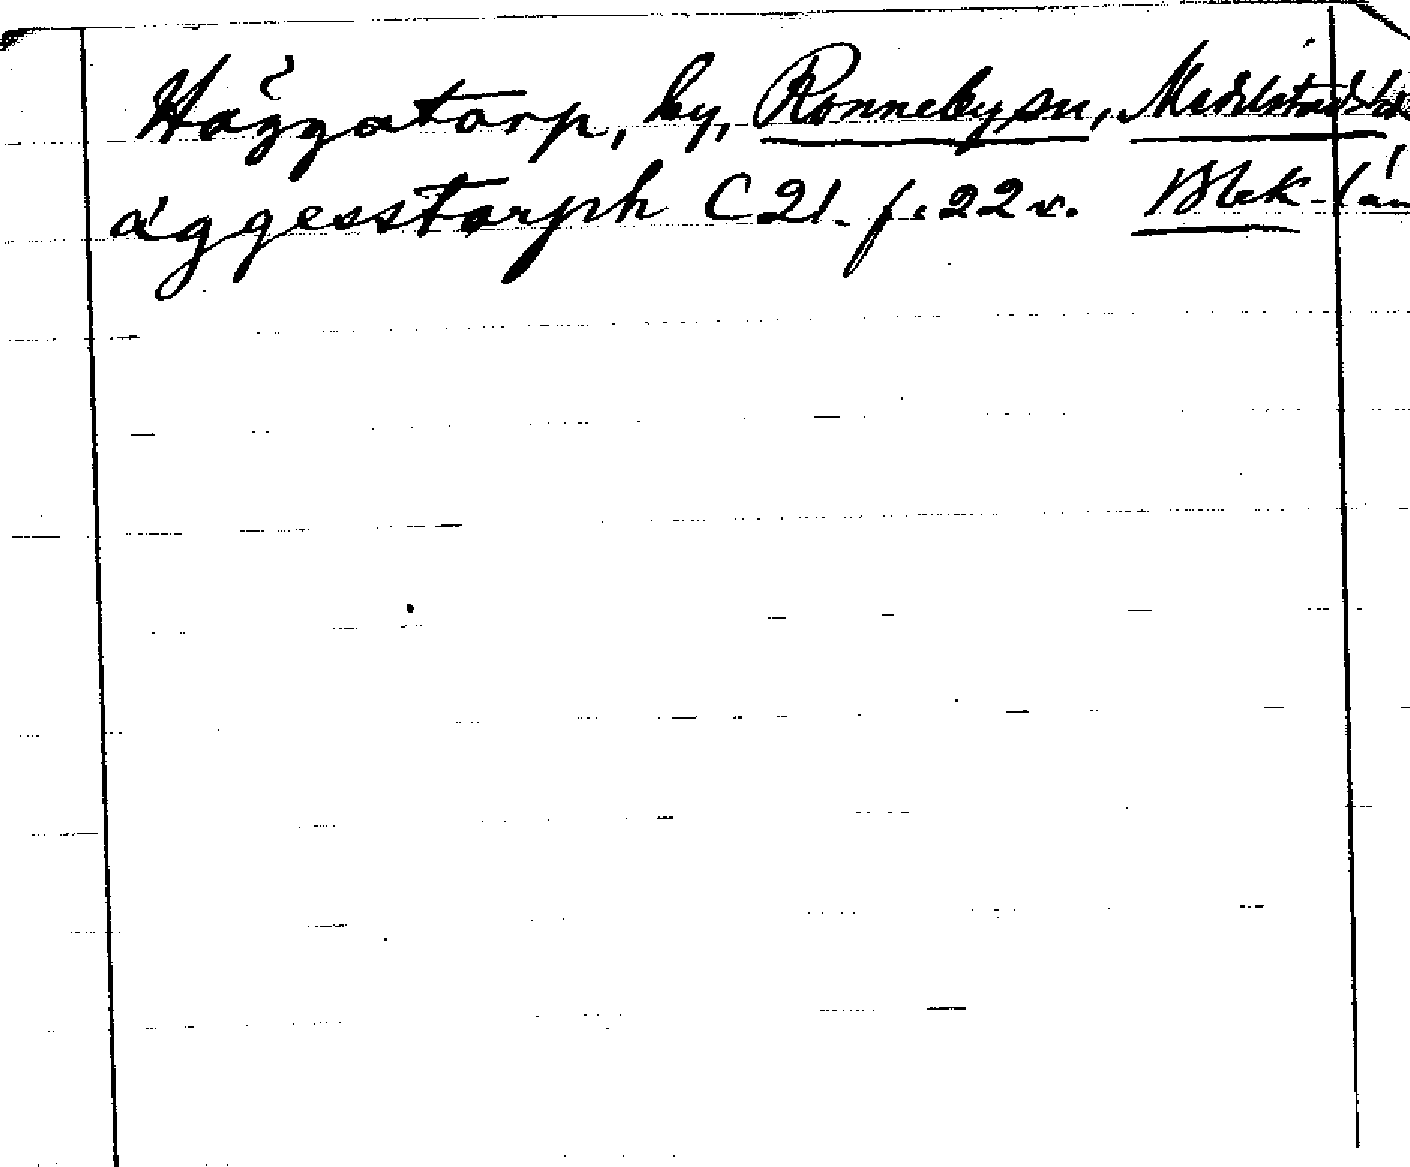 Häggatorp, by, Ronneby sn, Medelstads hd
äggesstorph C 21. f. 22 v. Blek. län